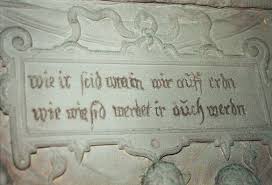 wie ir seid waren wir auff erdn
wie wir sid werdet ir auch werdn